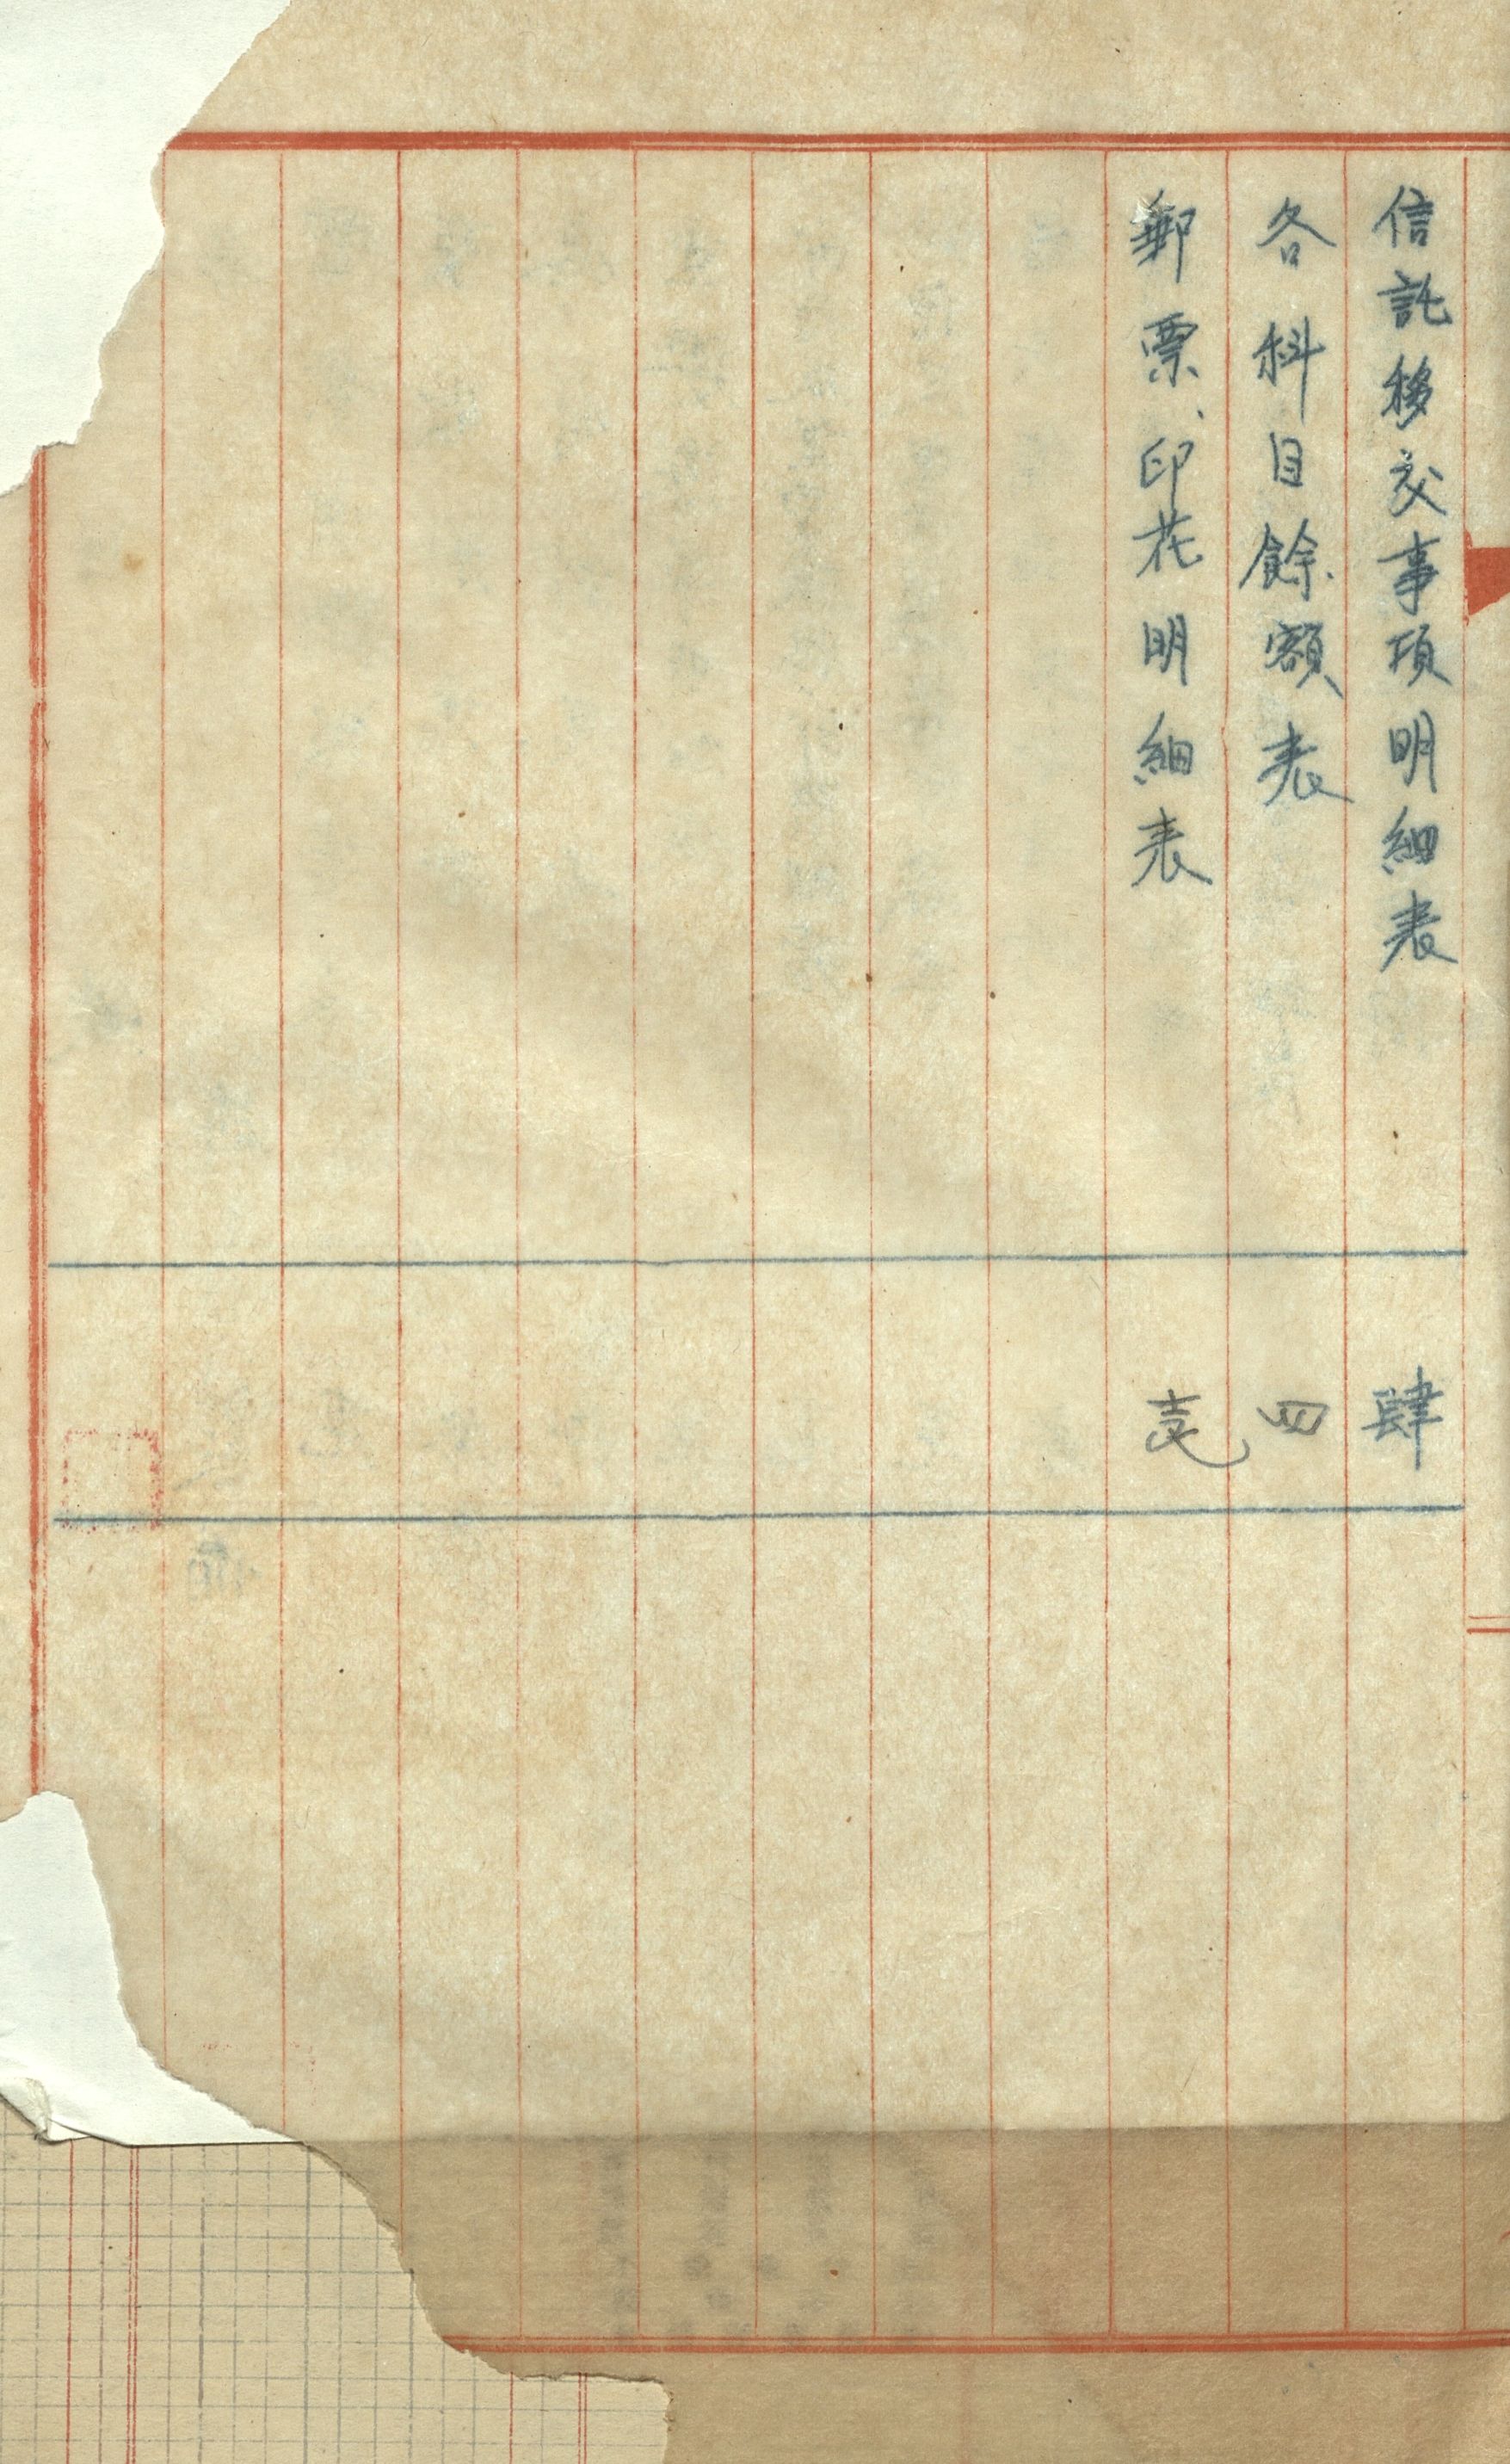 信託移交事項明細表 肆
各科目餘額表 四
郵票、印花明細表 壱